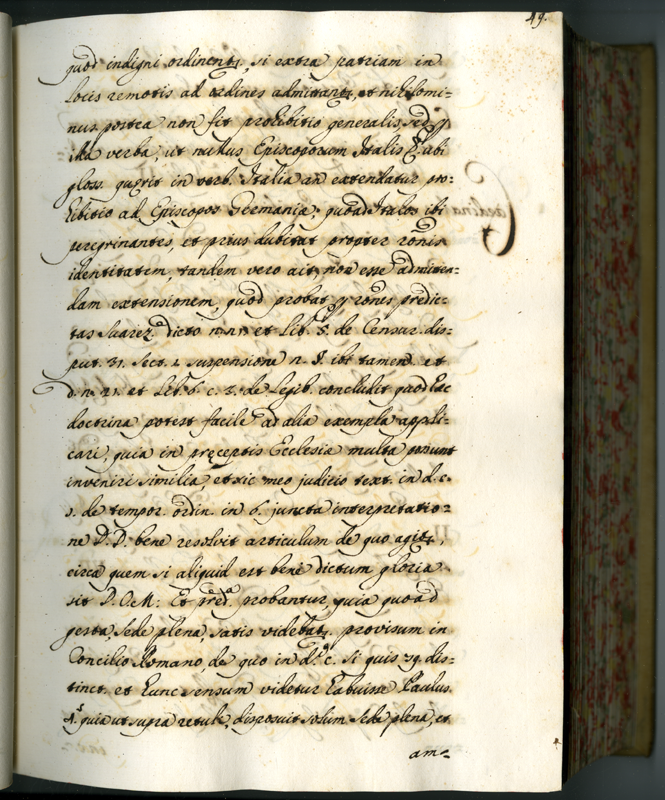 49.
quod indigni ordinent, si extra patriam in
locis remotis ad ordines admittant, et nihilomi-
nus postea non fit prohibitio generalis, sed p
illa verba, ut nullus Episcoporum Italis &, ubi
gloss. querit in verb. Italia an extendatur pro-
hibitio ad Episcopos Germania, quoad Italos ibi
peregrinantes, et prius dubitat propter ronis
identitatem, tandem vero ait, non esse admitten-
dam extensionem, quod probat p rones predic-
tas Suarez dicto n. et Lib. 5. de Censur. dis-
put. 31. Sect. 1. suspensione n. ibi tamen. et
d. n. 21. et Lib. 6. c. 3. de Legib. concludit quod hac
doctrina potest facile ad alia exempla appli-
cari, quia in preceptis Ecclesia multa possunt
inveniri similia, et sic meo judicio text. in d. c.
s. de tempor. ordin. in 6. juncta interpretatio-
ne D.D. bene resolvit articulum de quo agit,
circa quem si aliquid est bene dictum gloria
sit D.O.M. Et pred.a probantur, quia quoad
gesta, Sede plena, satis videbat. provisum in
Concilio Romano, de quo in d.o c. Si quis 79. dis-
tinct. et hunc sensum videtur habuisse Paulus
4.s quia ut supra retuli, disposuit solum Sede plena, et
am-